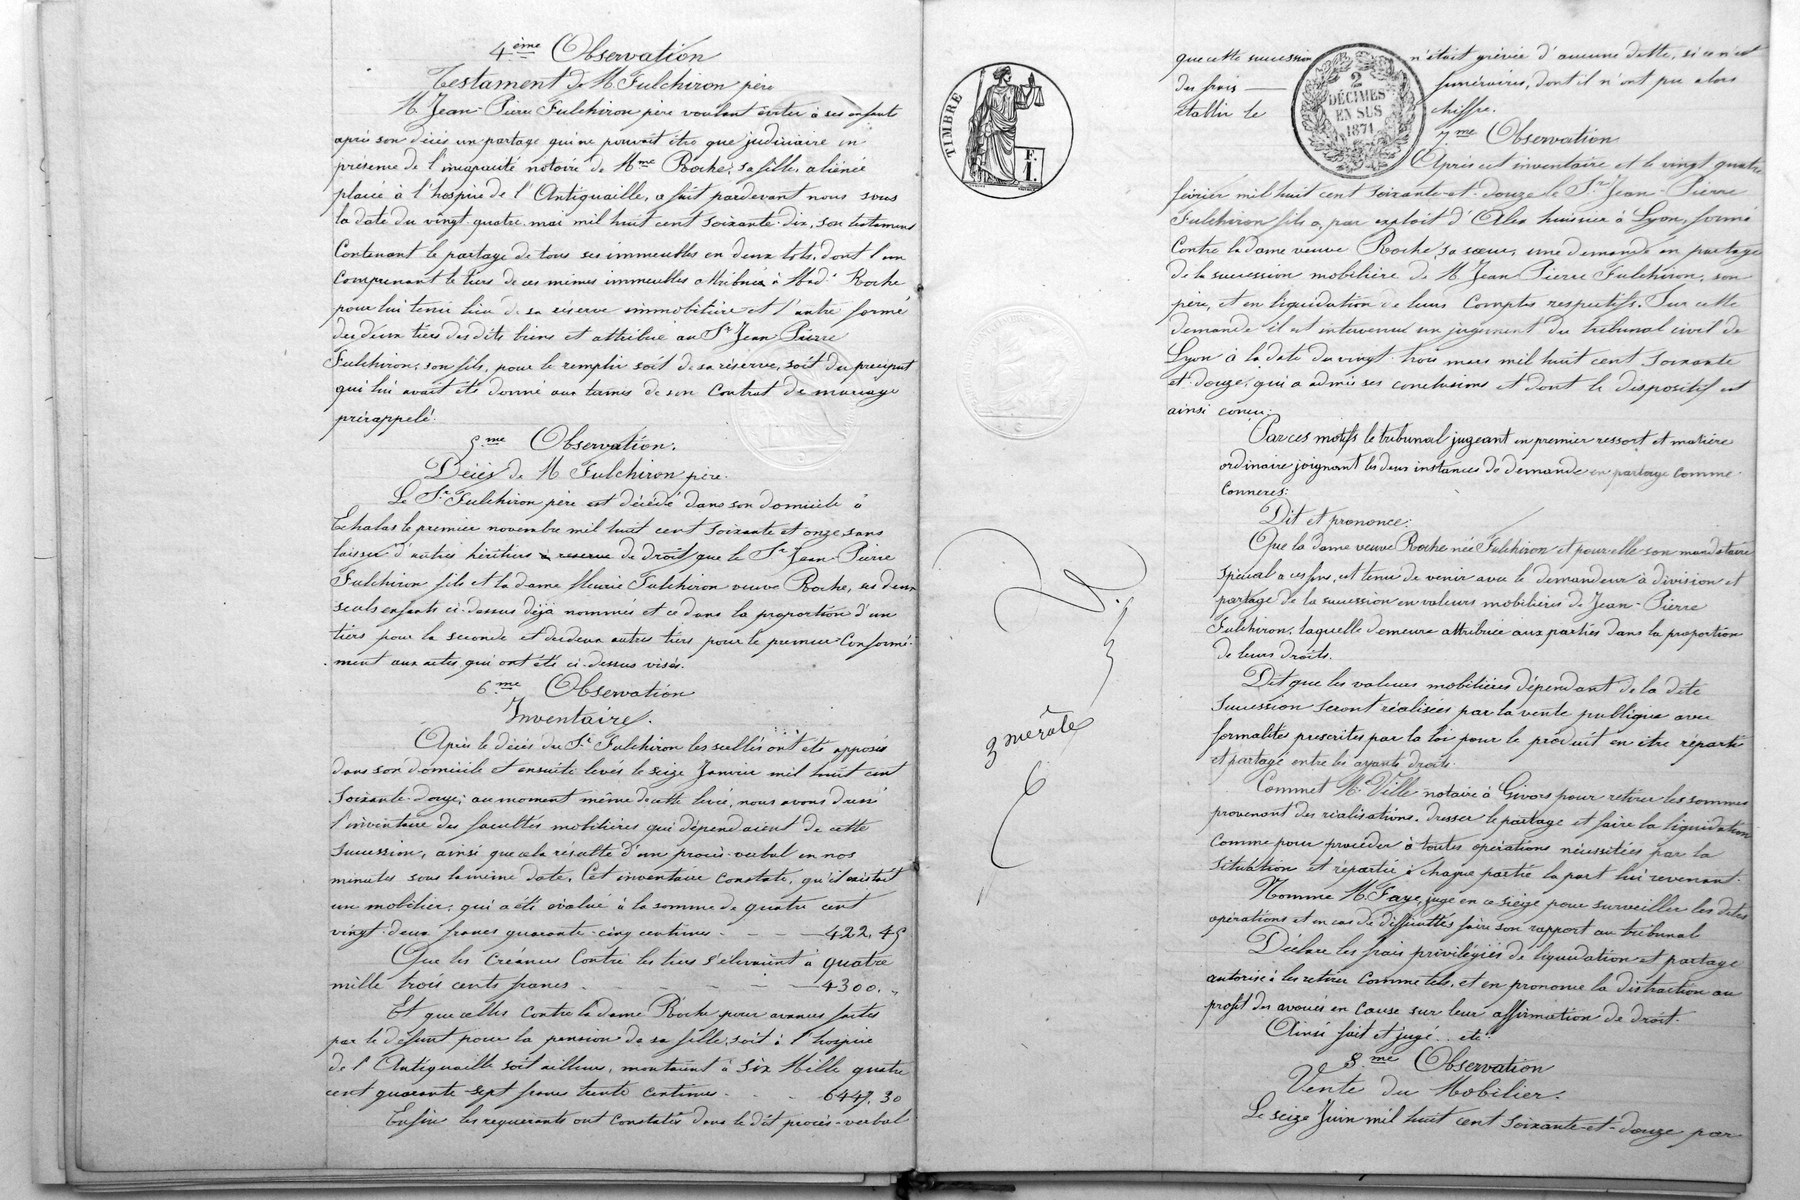 4ème Observation
Testament de M. Fulchiron père
M. Jean-Pierre Fulchiron père voulant éviter à ses enfants
après son décès un partage qui ne pouvait être que judiciaire en
présence de l'incapacité notoire de Mme Roche, sa fille, aliénée
placée à l'hospice de l'Antiquaille, a fait pardevant nous sous
la date du vingt-quatre mai mil huit cent soixante-dix, son testament
Contenant le partage de tous ses immeubles en deux lots, dont l'un
Comprenant le tiers de ces mêmes immeubles attribué à Mad. Roche
pour lui tenir lieu de sa réserve immobilière et l'autre formé
des deux tiers des dits biens et attribué au Sr Jean Pierre
Fulchiron, son fils, pour le remplir soit de sa réserve, soit du préciput
qui lui avait été donné aux termes de son Contrat de mariage
prérappelé.
5me Observation.
Décès de M. Fulchiron père.
Le Sr Fulchiron père est décédé dans son domicile à
Echalas le premier novembre mil huit cent soixante et onze, sans
laisser d'autres héritiers à reserve de droit que le Sr Jean-Pierre
Fulchiron fils et la dame fleurie Fulchiron veuve Roche, ses deux
seuls enfants ci-dessus déjà nommés et ce dans la proportion d'un
tiers pour la seconde et des deux autres tiers pour le premier Conformé-
ment aux actes qui ont été ci-dessus visés.
6me Observation
Inventaire.
Après le décès du Sr Fulchiron les scellés ont été apposés
dans son domicile et ensuite levés le seize Janvier mil huit cent
soixante-douze; au moment même de cette levée, nous avons dressé
l'inventaire des facultés mobilières qui dépendaient de cette
succession, ainsi que cela résulte d'un procès-verbal en nos
minutes sous la même date. Cet inventaire Constate, qu'il existait
un mobilier, qui a été évalué à la somme de quatre cent
vingt-deux francs quarante-cinq centimes - - - 422.45
Que les Créances Contre les tiers s'élevaient à quatre
mille trois cents francs - - - - 4300. "
Et que celles Contre la dame Roche pour avances faites
par le défunt pour la pension de sa fille, soit à l'hospice
de l'Antiquaille soit ailleurs, montaient à six Mille quatre
cent quarante-sept francs trente centimes - - - 6447.30
Enfin les requérants ont Constaté dans le dit procès-verbal
TIMBRE
F.
1.
3 me rôle
que cette succession n'était grévée d'aucune dette, si ce n'est
des frais — funéraires, dont il n'ont pu alors
établir le chiffre.
2
DÉCIMES
EN SUS
1871
7me Observation
Après cet inventaire et le vingt quatre
février mil huit cent soixante-et-douze le Sr Jean-Pierre
Fulchiron fils a, par exploit d'Alex huissier à Lyon, formé
Contre la dame veuve Roche, sa sœur, une demande en partage
de la succession mobilière de M. Jean Pierre Fulchiron, son
père, et en liquidation de leurs Comptes respectifs. Sur cette
demande il est intervenu un jugement du tribunal civil de
Lyon à la date du vingt-trois mars mil huit cent soixante
et-douze, qui a admis ses conclusions et dont le dispositif est
ainsi conçu:
Par ces motifs le tribunal jugeant en premier ressort et matière
ordinaire joignant les deux instances de demande en partage comme
Connexes:
Dit et prononce:
Que la dame veuve Roche née Fulchiron et pour elle son mandataire
spécial à ces fins, est tenu de venir avec le demandeur à division et
partage de la succession en valeurs mobilières de Jean-Pierre
Fulchiron, laquelle demeure attribuée aux parties dans la proportion
de leurs droits.
Dit que les valeurs mobilières dépendant de la dite
succession seront réalisées par la vente publique avec
formalités prescrites par la loi pour le produit en être réparti
et partagé entre les ayants droits.
Commet Me Ville notaire à Givors pour retirer les sommes
provenant des réalisations, dresser le partage et faire la liquidation
Comme pour procéder à toutes opérations nécessitées par la
situation et répartir à chaque partie la part lui revenant.
Nomme M. Faye, juge en ce siège pour surveiller les dites
opérations et en cas de difficultés faire son rapport au tribunal
Déclare les frais privilégiés de liquidation et partage
autorise à les retirer Comme tels, et en prononce la distraction au
profit des avoués en Cause sur leur affirmation de droit.
Ainsi fait et jugé.. etc.
8me Observation
Vente du Mobilier.
Le seize Juin mil huit cent soixante-et-douze par